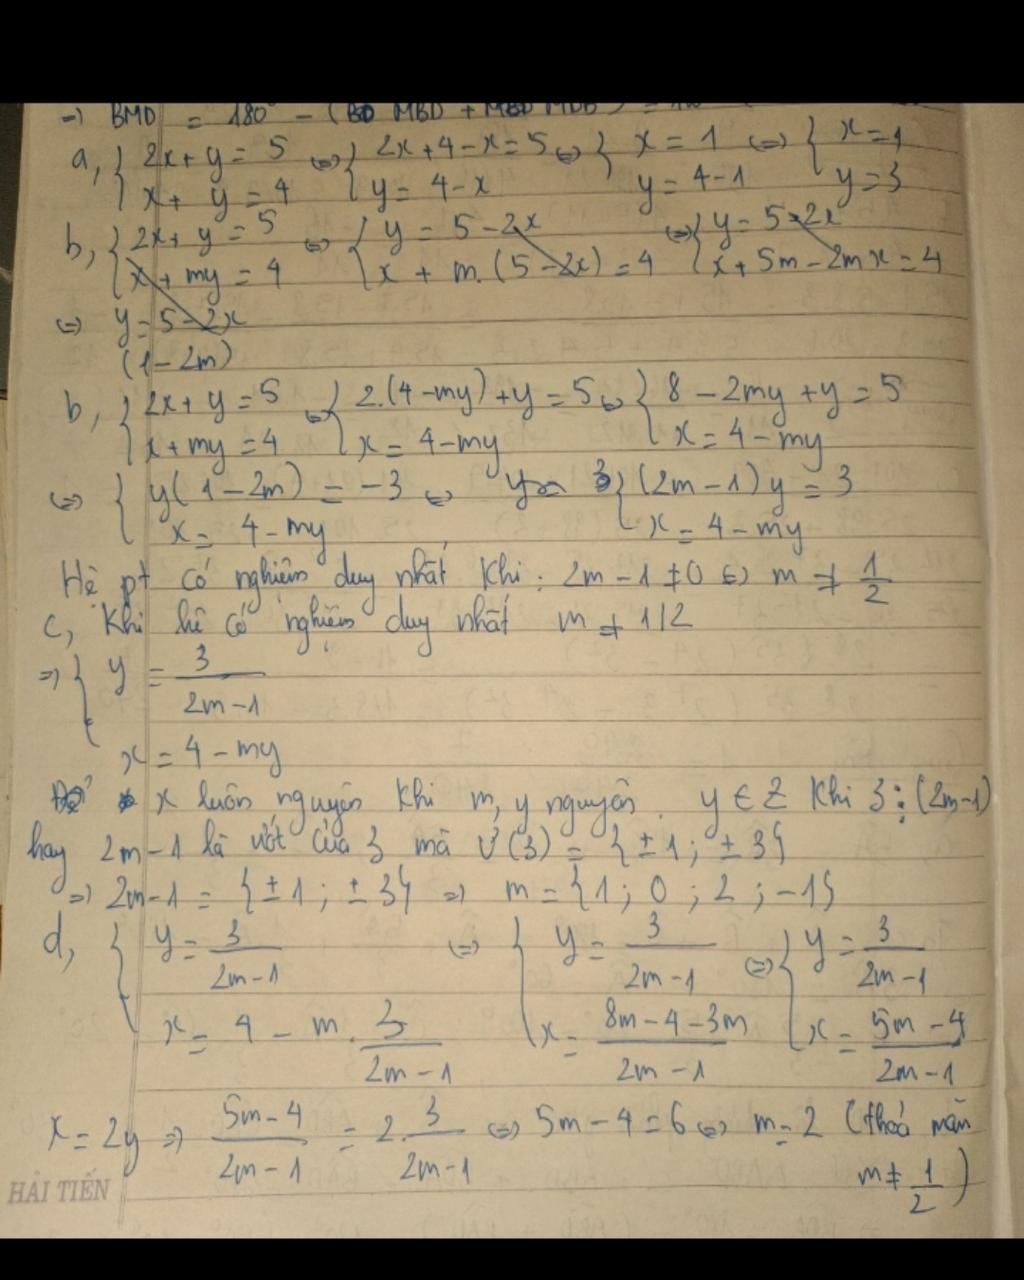 => BMD = 180° - (BD MBD + MBD MDB) =
a, { 2x + y = 5 <=> { 2x + 4 - x = 5 <=> { x = 1 <=> { x = 1
x + y = 4 y = 4 - x y = 4 - 1 y = 3
b, { 2x + y = 5 <=> { y = 5 - 2x <=> { y = 5 - 2x
x + my = 4 x + m. (5 - 2x) = 4 x + 5m - 2mx = 4
<=> y = 5 - 2x
(1 - 2m)
b, { 2x + y = 5 <=> { 2.(4 - my) + y = 5 <=> { 8 - 2my + y = 5
x + my = 4 x = 4 - my x = 4 - my
<=> { y(1 - 2m) = -3 <=> y = 3 { (2m - 1) y = 3
x = 4 - my x = 4 - my
Hệ pt có nghiệm duy nhất khi : 2m - 1 ≠ 0 <=> m ≠ 1/2
c, Khi hệ có nghiệm duy nhất m ≠ 1/2
=> { y = 3/(2m - 1)
x = 4 - my
Để x luôn nguyên khi m, y nguyên. y ∈ Z Khi 3 ⋮ (2m-1)
hay 2m - 1 là ước của 3 mà Ư(3) = { ±1 ; ±3 }
=> 2m-1 = { ±1 ; ±3 } => m = { 1 ; 0 ; 2 ; -1 }
d, { y = 3/(2m - 1) <=> { y = 3/(2m - 1) <=> { y = 3/(2m - 1)
x = 4 - m . 3/(2m - 1) x = (8m - 4 - 3m)/(2m - 1) x = (5m - 4)/(2m - 1)
x = 2y => (5m - 4)/(2m - 1) = 2. 3/(2m - 1) <=> 5m - 4 = 6 <=> m = 2 (thoả mãn
m ≠ 1/2 )
HẢI TIẾN